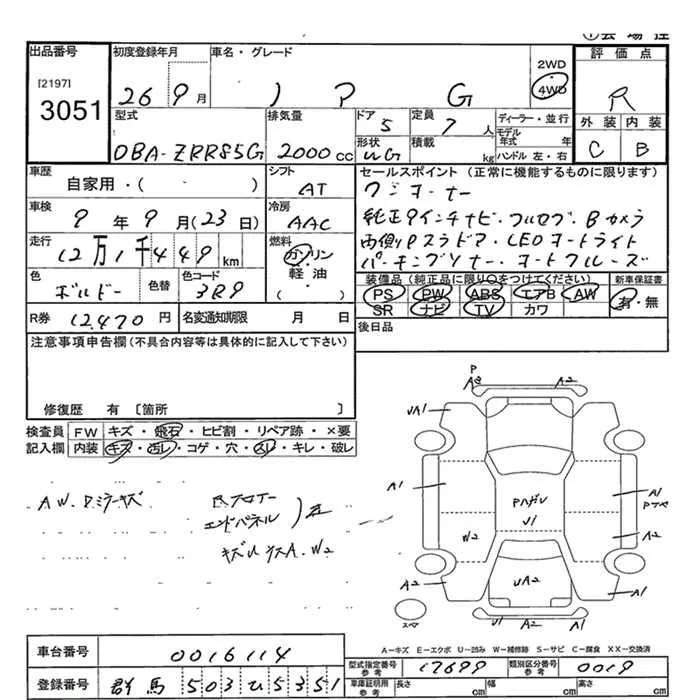 出品番号
[2197]
3051
初度登録年月
26 9月
車名・グレード
ノア G
2WD
4WD
評価点
R
外装 内装
C B
型式
DBA-ZRR85G
排気量
2000cc
ドア
5
形状
WG
定員
7人
積載
kg
ディーラー・並行
モデル年式 年
ハンドル 左・右
車歴
自家用・( )
シフト
AT
車検
9年9月(23日)
冷房
AAC
走行
12万1千449km
燃料
ガソリン
軽油
( )
色
ボルドー
色替
色コード
3R9
R券 12,470円
名変通知期限 月 日
セールスポイント(正常に機能するものに限ります)
ワンオーナー
純正9インチナビ・フルセグ・Bカメラ
両側Pスラドア・LEDオートライト
パーキングソナー・オートクルーズ
装備品(純正品に限り○をつけてください)
PS PW ABS エアB AW
SR ナビ TV カワ
新車保証書
有・無
後日品
注意事項申告欄(不具合内容等は具体的に記入して下さい)
修復歴 有 [箇所 ]
検査員記入欄
FW キズ・飛石・ヒビ割・リペア跡・×要
内装 キズ・汚レ・コゲ・穴・スレ・キレ・破レ
AW.Dミラーキズ
Rフロアー
エンドパネル
A3 P A2
UA1
A1
A1
W2
Pハガレ
U1
A2
UA2
A1
U1 A2
スペ
A-キズ E-エクボ U-凹み W-補修跡 S-サビ C-腐食 XX-交換済
車台番号 0016114
登録番号 群馬503ひ5351
型式指定番号 参考 17699
類別区分番号 参考 0019
車庫証明用 参考
長さ cm
幅 cm
高さ cm